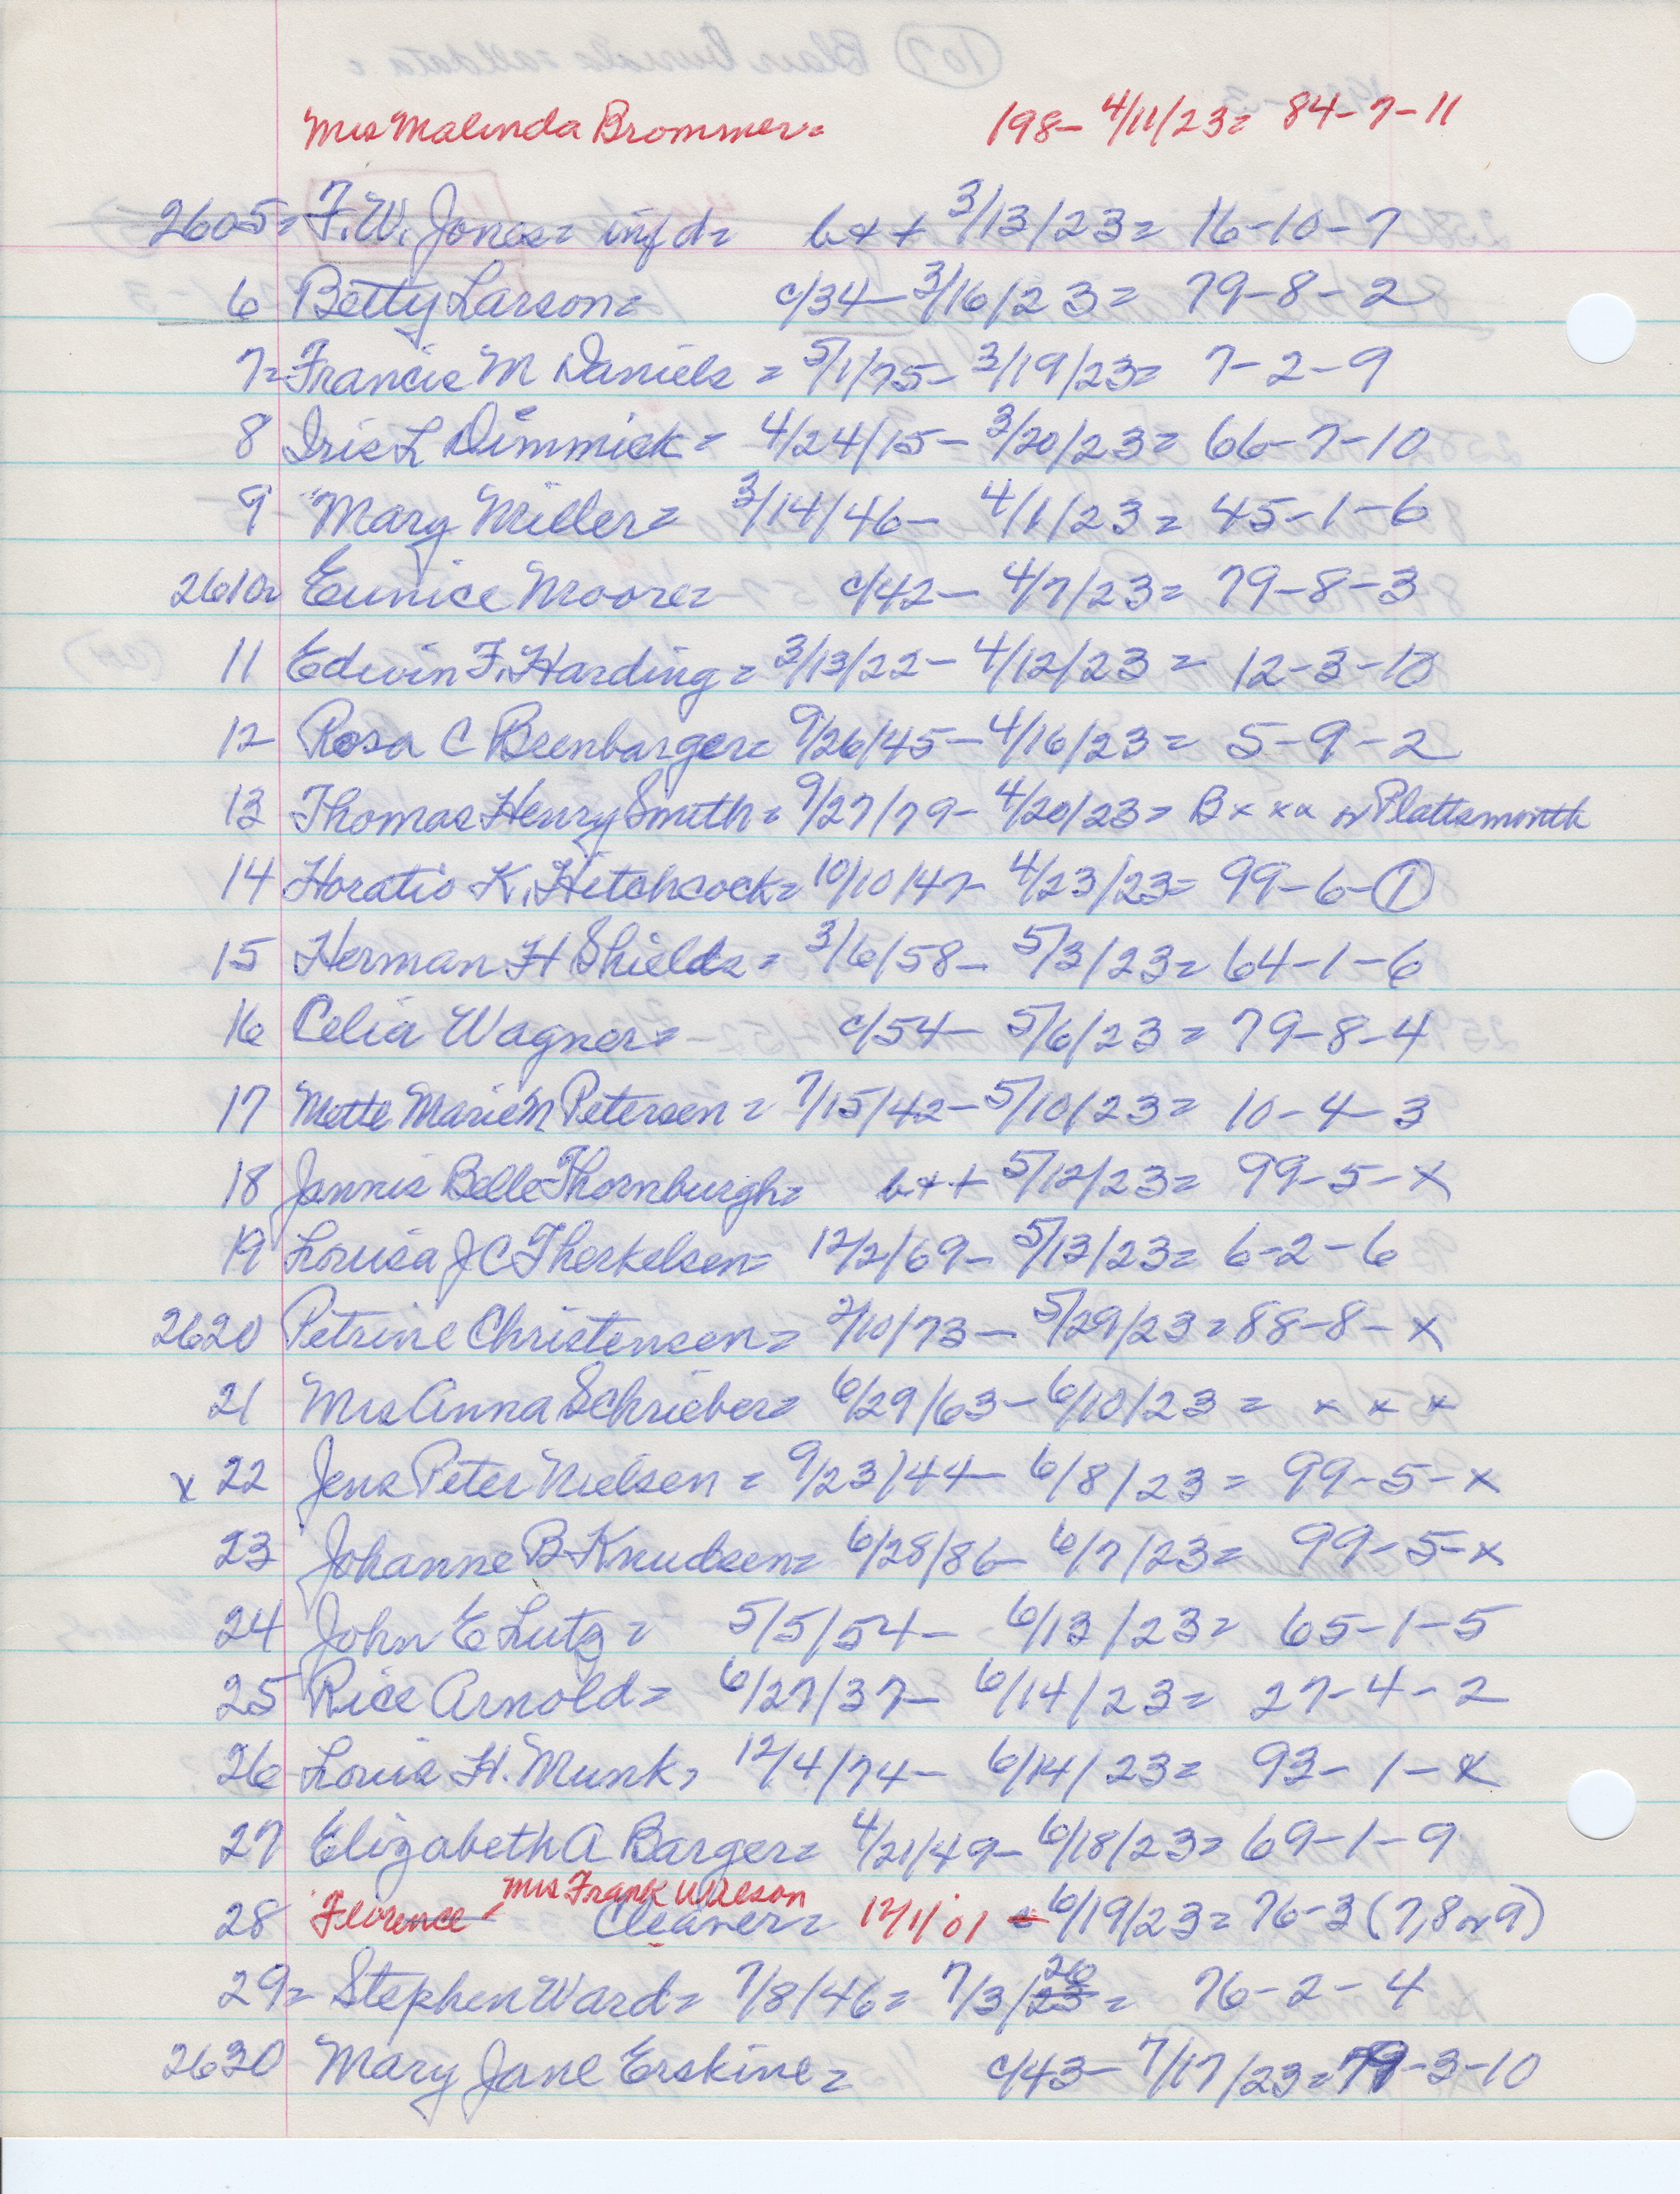 Mrs Malinda Brommer= 198- 4/11/23= 84-7-11
2605= F.W. Jones= inf d= b++ 3/13/23= 16-10-7
6 Betty Larson= c/34- 3/16/23= 79-8-2
7= Francis M Daniels = 5/1/75- 3/19/23= 7-2-9
8 Iris L Dimmick= 4/24/15- 3/20/23= 66-7-10
9 Mary Miller= 3/14/46- 4/1/23= 45-1-6
2610= Eunice Moore= c/42- 4/7/23= 79-8-3
11 Edwin F. Harding= 3/13/22- 4/12/23= 12-3-10
12 Rosa C Beenbarger= 9/26/45- 4/16/23= 5-9-2
13 Thomas Henry Smith= 9/27/79- 4/20/23= B x x x or Plattsmonth
14 Horatio K. Hitchcock= 10/10/47- 4/23/23= 99-6-1
15 Herman H Shields= 3/6/58- 5/3/23= 64-1-6
16 Celia Wagner= c/54- 5/6/23= 79-8-4
17 Mette Marie M Petersen= 7/15/42- 5/10/23= 10-4-3
18 Jennie Belle Thornburgh= b++ 5/12/23= 99-5-x
19 Louisa J C Therkelsen= 12/2/69- 5/13/23= 6-2-6
2620 Petrine Christensen= 2/10/73- 5/29/23= 88-8-x
21 Mrs Anna Schrieber= 6/29/63- 6/10/23= x x x
x 22 Jens Peter Nielsen= 9/23/44- 6/8/23= 99-5-x
23 Johanne B Knudsen= 6/28/86- 6/7/23= 99-5-x
24 John E Lutz= 5/5/54- 6/13/23= 65-1-5
25 Rice Arnold= 6/27/37- 6/14/23= 27-4-2
26 Louis H. Munk, 12/4/74- 6/14/23= 93-1-x
27 Elizabeth A Barger= 4/21/49- 6/18/23= 69-1-9
Mrs Frank Wilson
28 Florence Cleaver= 12/1/01 - 6/19/23= 76-3 (7,8 or 9)
29= Stephen Ward= 7/8/46= 7/3/23 26= 76-2-4
2630 Mary Jane Erskine= c/43- 7/17/23= 79-3-10